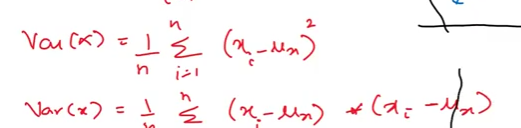 Var(x) = 1/n n∑i=1 (xᵢ - μx)²
Var(x) = 1/n n∑ (xᵢ - μx) * (xᵢ - μx)